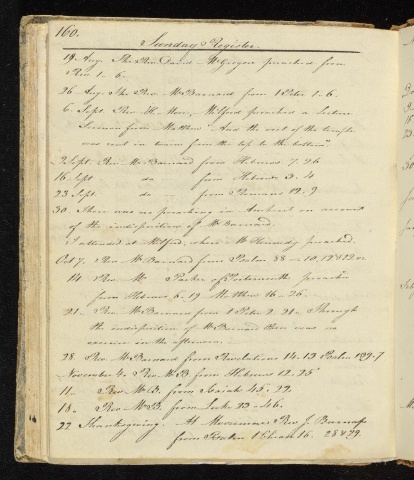 160.
Sunday Register.
19 Aug. The Rev. David McGregore preached from
Rev 1. 6.
26 Aug. The Rev Mr Barnard from 1 Peter 1. 6.
6. Sept. Rev. Mr. Moor, Milford preached a Lecture
Sermon from Matthew "And the veil of the temple
was rent in twain from the top to the bottom"
Sept. Rev. Mr Barnard from Hebrews 7. 26
16 Sept do from Hebrews 3. 4
23 Sept. do from Romans 12. 9
30. There was no preaching in Amherst on account
of the indisposition of Mr Barnard.
I attended at Milford, where Mr Kennedy preached.
Oct 7. Rev. Mr Barnard from Psalm 38 - 10, 12
14 Rev. Mr Parker of Portsmouth preach
from Hebrews 6. 19 Matthew 16 - 26.
21. Rev Mr Barnard from 1 Peter 2. 21. Through
the indisposition of Mr Barnard there was no
exercise in the afternoon.
28 Rev. Mr Barnard from Revelations 14. 13 Psalm 139. 7
November 4. Rev. Mr B from Hebrews 12. 25
11. Rev Mr B. from Isaiah 45. 22.
18. Rev Mr B. from Luke 23 - 46.
22 Thanksgiving. At Merrimac Rev J. Burnap
from Psalm 16. 28 & 29.